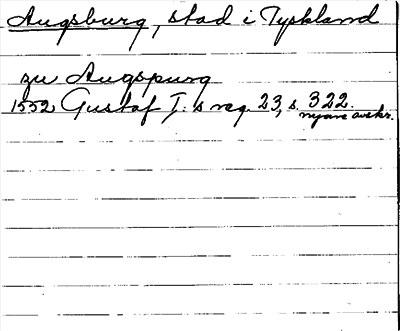 Augsburg, stad i Tyskland
zu Augspurg
1552 Gustaf I:s reg. 23, s. 322.
nyare avskr.